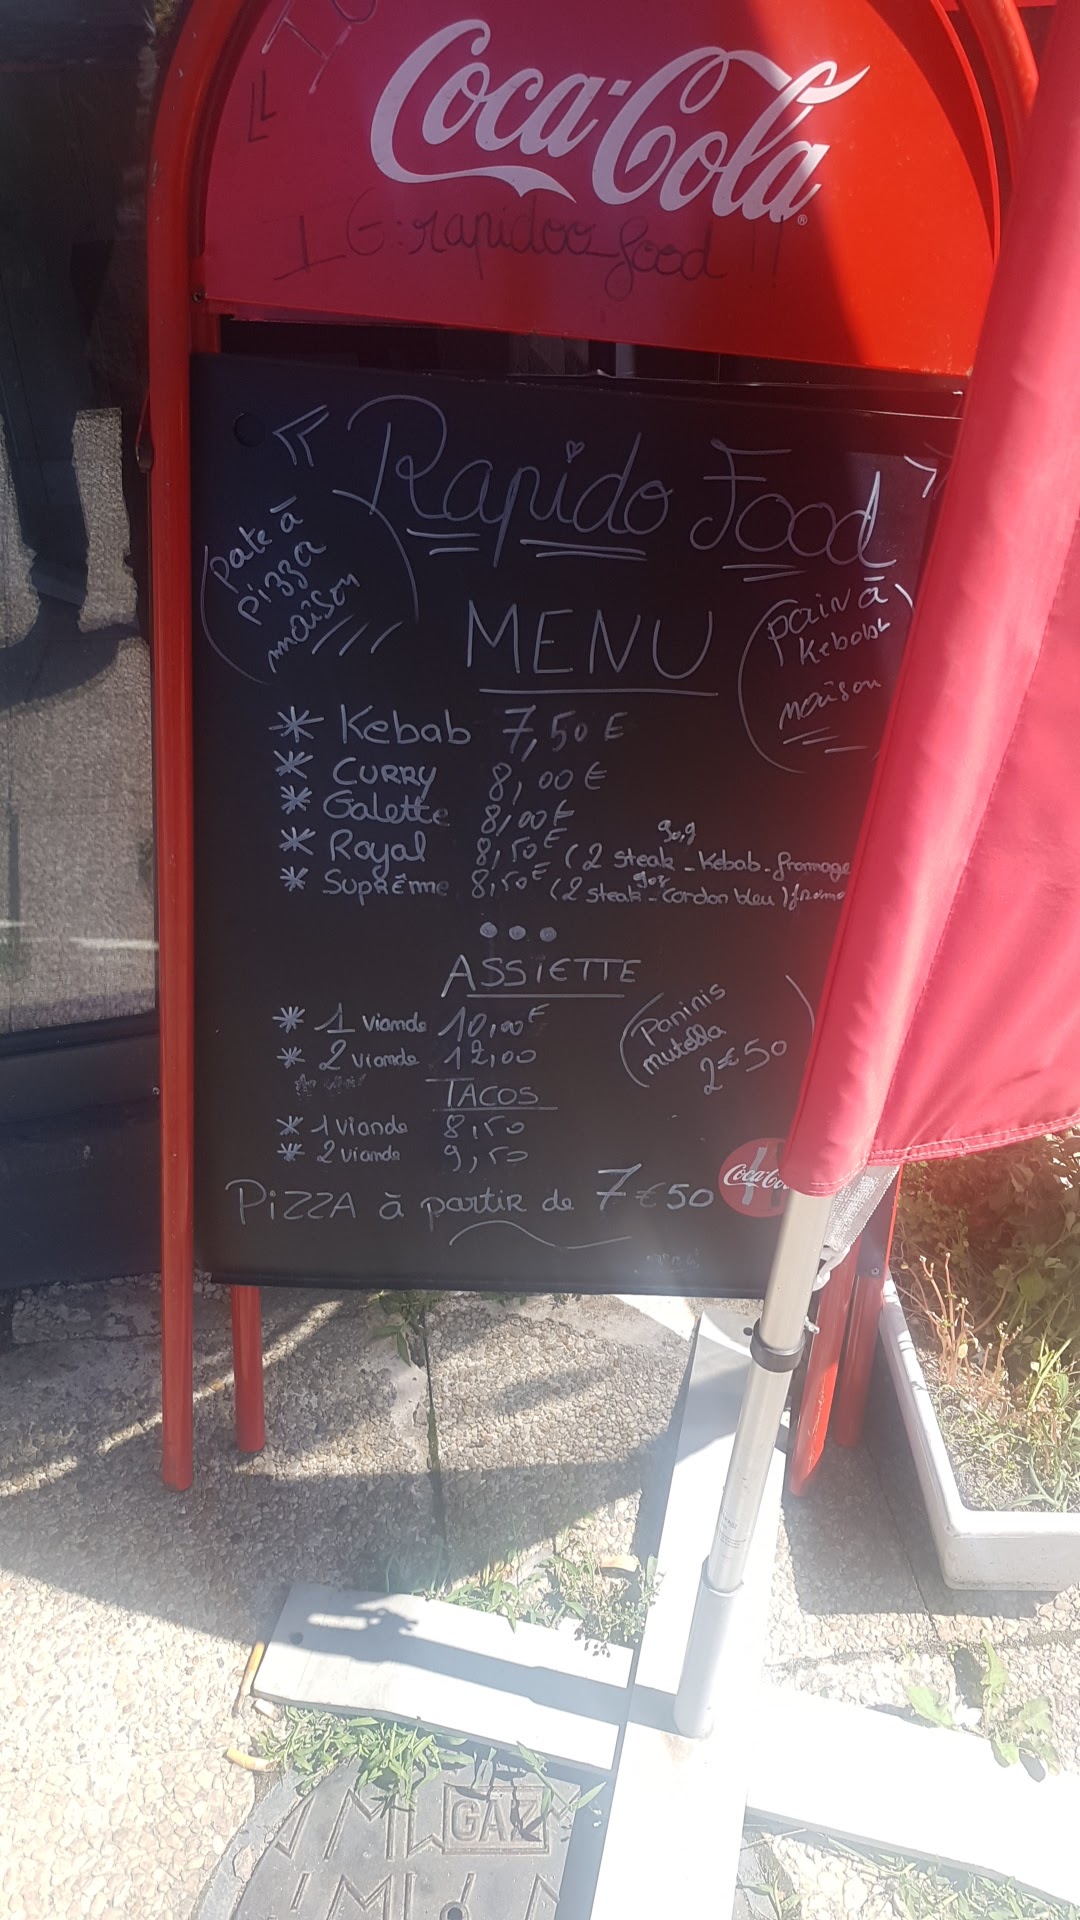 Coca-Cola
IG: rapidoo_food !!
Rapido Food
pate à
pizza
maison
MENU
pain à
Kebab
maison
* Kebab 7,50 €
* CURRY 8,00 €
* Galette 8,00 €
* Royal 8,50 € (2 steak 90,g - Kebab - fromage
* Suprême 8,50 € (2 steak 90g - Cordon bleu)
ASSIETTE
* 1 viande 10,00 €
* 2 viande 12,00
Paninis
nutella
2€50
TACOS
* 1 viande 8,50
* 2 viande 9,50
PIZZA à partir de 7€50
Coca-Co
GAZ